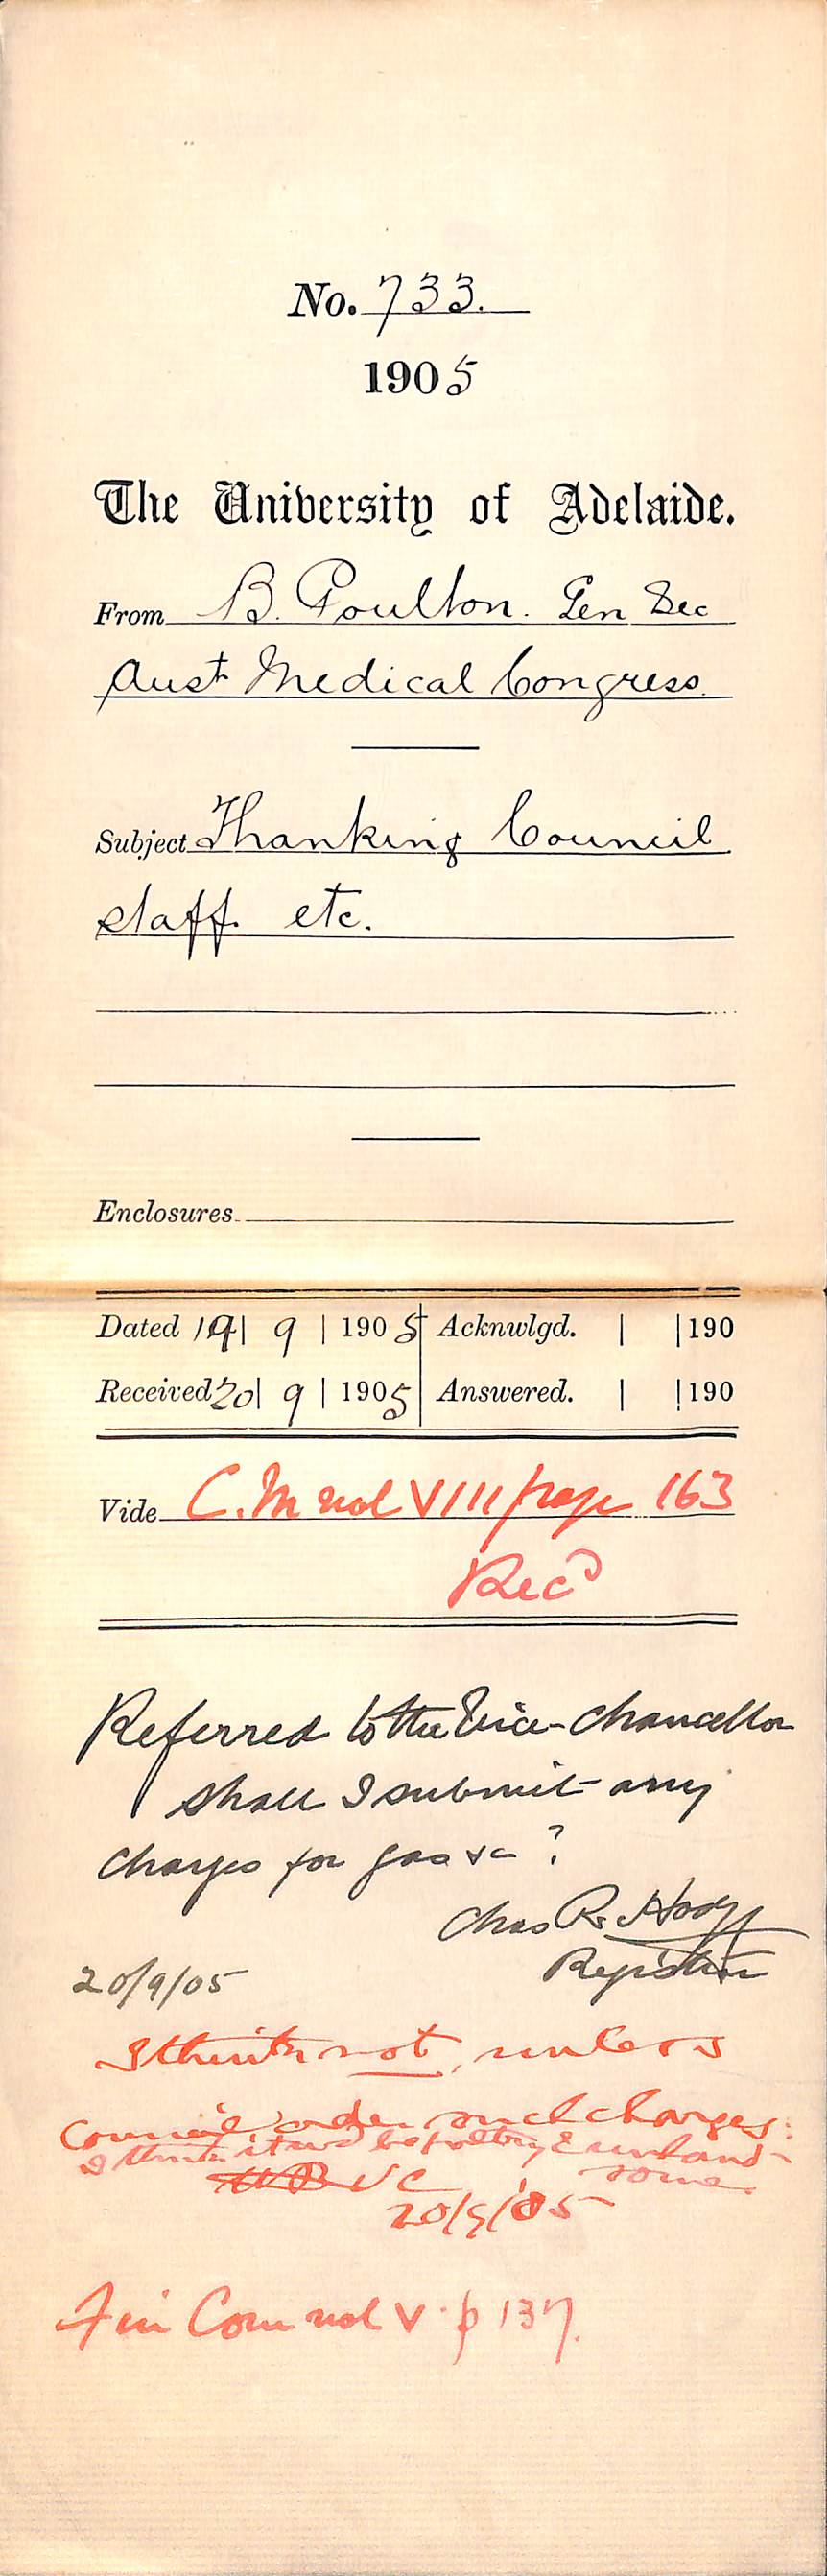 No. 733.
1905
The University of Adelaide.
From B. Poulton. Gen Sec
Aust Medical Congress.
Subject Thanking Council
staff. etc.
Enclosures
Dated 19| 9 | 1905 Acknwlgd. | |190
Received 20| 9 | 1905 Answered. | |190
Vide C.M vol VIII page 163
Recd
Referred to the Vice-Chancellor
shall I submit any
charges for gas &c ?
Chas R. Hodge
Registrar
20/9/05
I think not, unless
Council order such charges.
I think it wd be paltry & unhand-
some.
VC
20/9/05
Fin Com vol V. p 137.